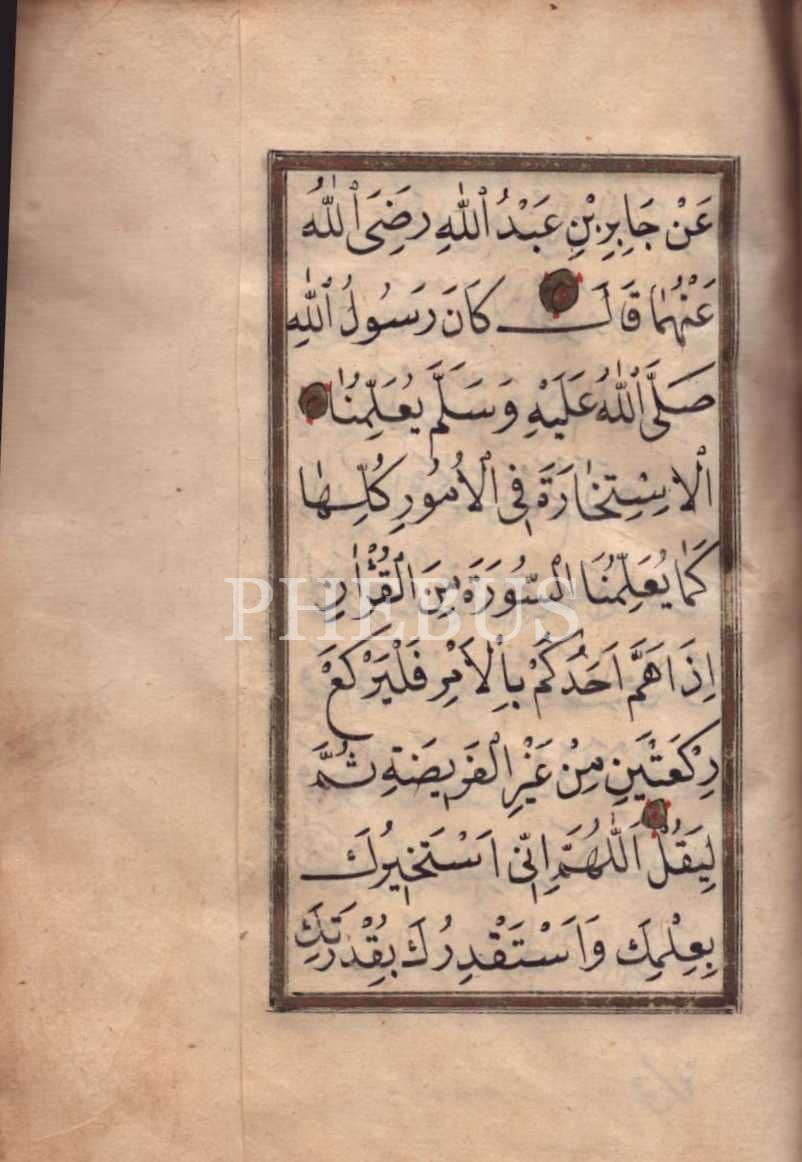 عَنْ جَابِرِ بْنِ عَبْدُ ٱللّٰهِ رَضِىَ ٱللّٰهُ
عَنْهُمَا قَالَ كَانَ رَسُولُ ٱللّٰهِ
صَلَّى ٱللّٰهُ عَلَيْهِ وَسَلَّمَ يُعَلِّمُنَا
الْاِسْتِخَارَةَ فِى الْاُمُورِ كُلِّهَا
كَمَا يُعَلِّمُنَا السُّورَةَ مِنَ الْقُرْاٰنِ
PHEBUS
اِذَا هَمَّ اَحَدُكُمْ بِالْاَمْرِ فَلْيَرْكَعْ
رَكْعَتَيْنِ مِنْ غَيْرِ الْفَرِيضَةِ ثُمَّ
لِيَقُلْ اَللّٰهُمَّ اِنِّى اَسْتَخِيرُكَ
بِعِلْمِكَ وَاَسْتَقْدِرُكَ بِقُدْرَتِكَ